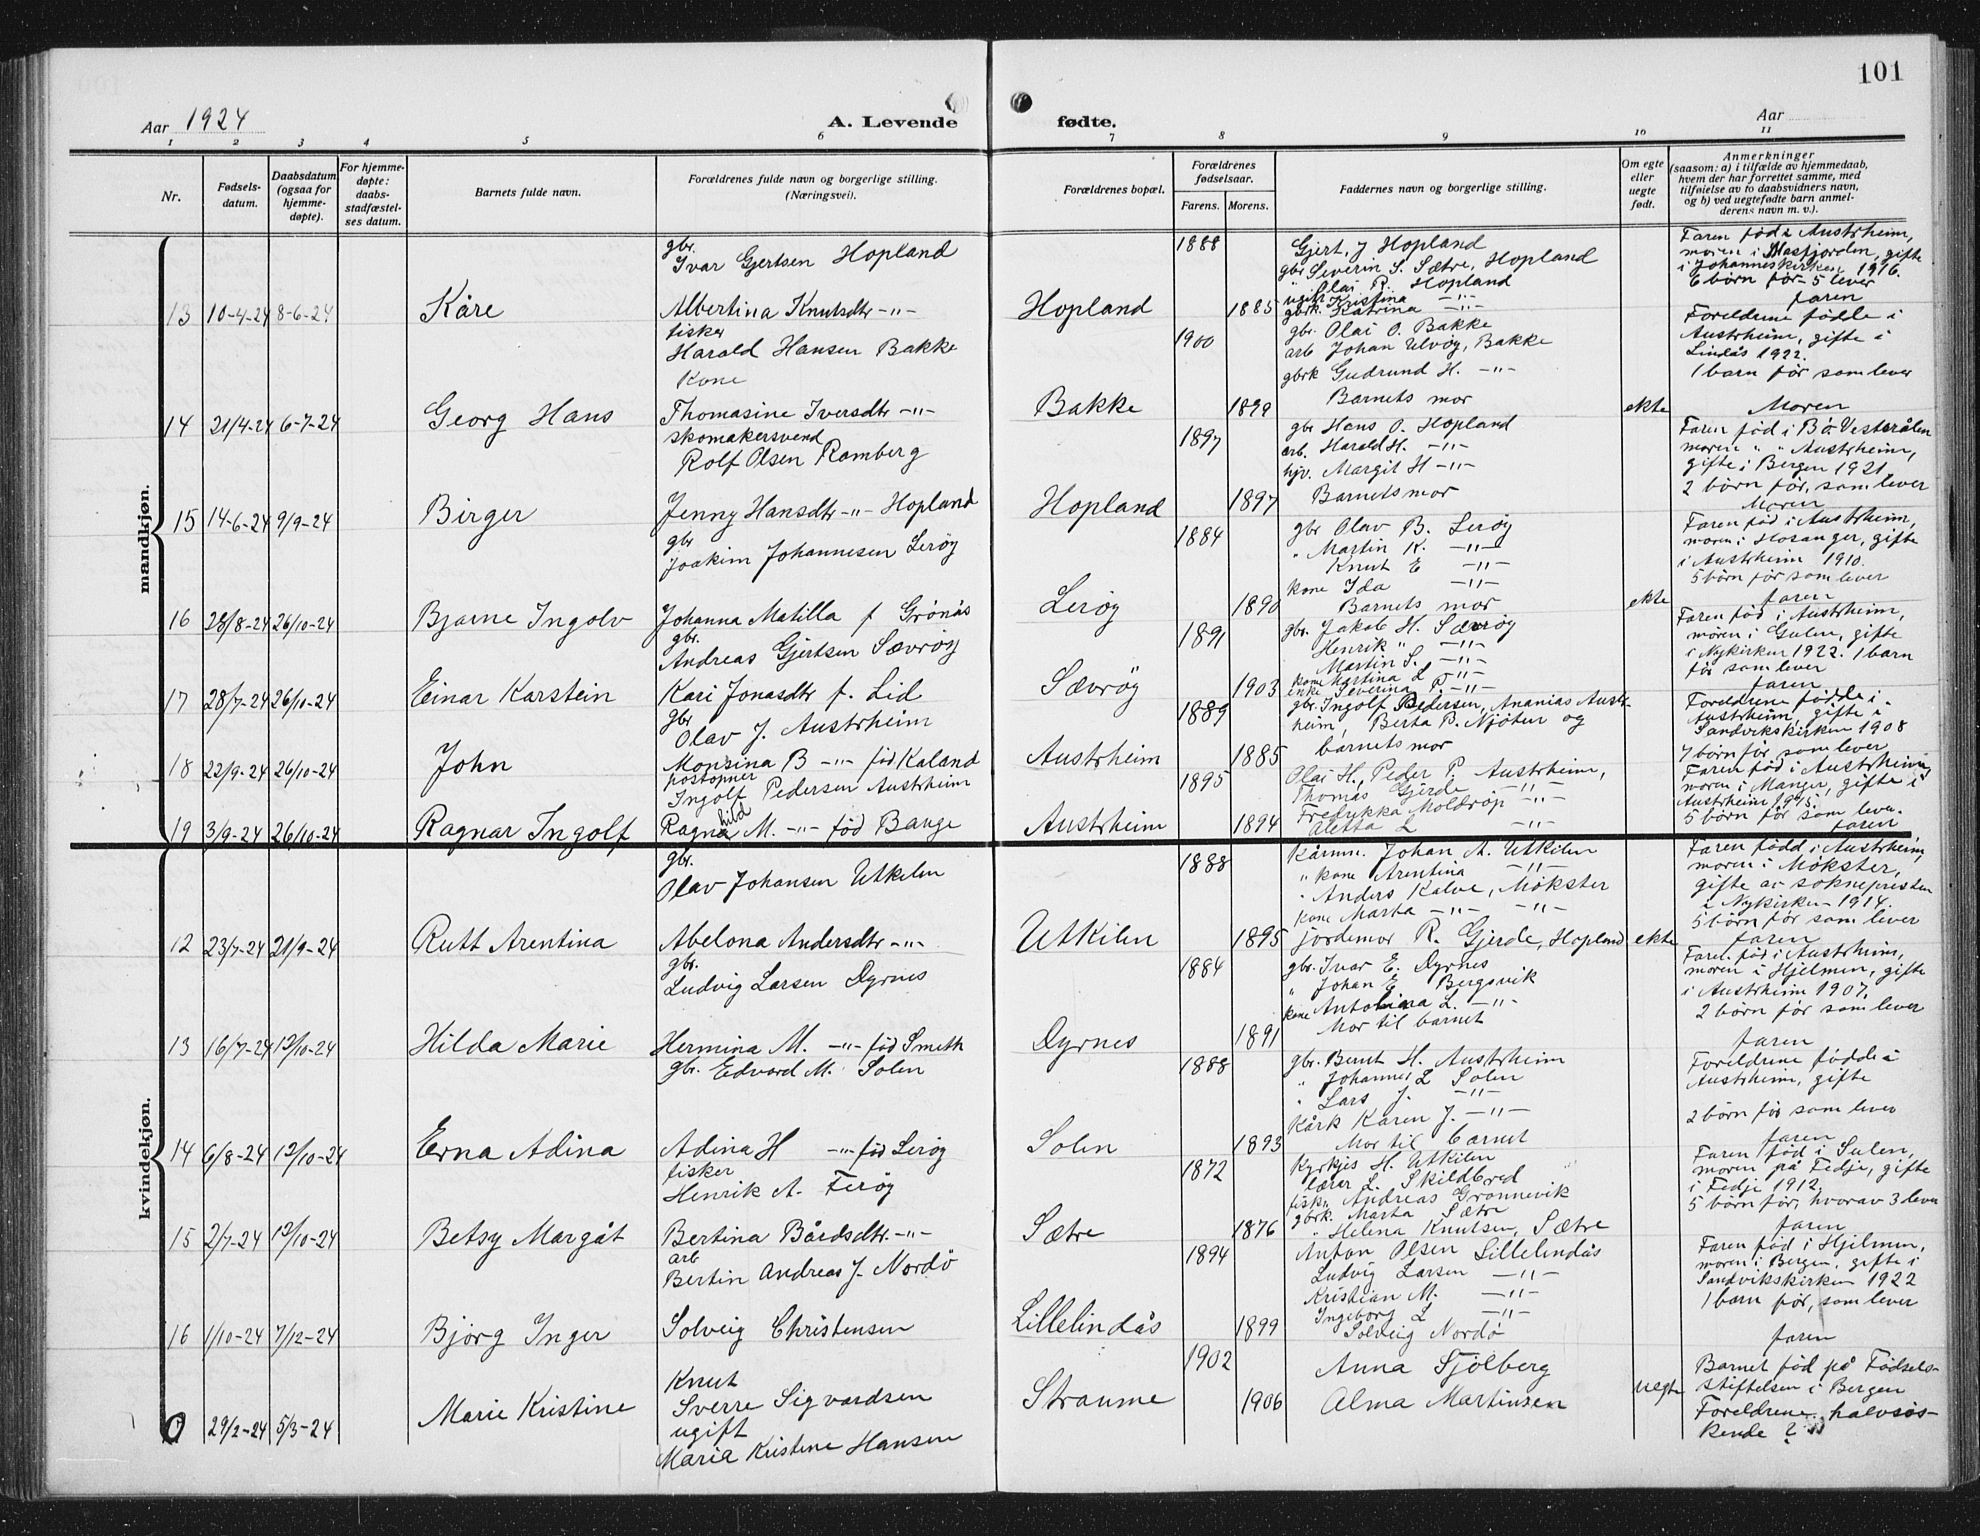 101
Aar 1924
A. Levende fødte.
Aar
1 2 3 4 5 6 7 8 9 10 11
Nr.
Fødsels-
datum.
Daabsdatum
(ogsaa for
hjemme-
døpte).
For hjemme-
døpte:
daabs-
stadfæstel-
ses datum.
Barnets fulde navn.
Forældrenes fulde navn og borgerlige stilling.
(Næringsvei).
Forældrenes bopæl.
Forældrenes
fødselsaar.
Farens. Morens.
Faddernes navn og borgerlige stilling.
Om egte
eller
uegte
født.
Anmerkninger
(saasom: a) i tilfælde av hjemmedaab,
hvem der har forrettet samme, med
tilføielse av to daabsvidners navn,
og b) ved uegtefødte barn anmel-
derens navn m. v.).
mandkjøn.
13 10-4-24 8-6-24 Kåre
gbr.
Ivar Gjertsen Hopland
Albertina Knutsdtr -"-
Hopland 1888 1885
Gjert J Hopland
gbr Severin S. Sætre, Hopland
" Olai R. Hopland
ugift Kristina -"-
gbrk. Katrina -"-
Faren fød i Austrheim,
moren i Masfjorden, gifte
i Johanneskirken 1916.
6 børn før - 5 lever
faren
14 21/4-24 6-7-24 Georg Hans
fisker
Harald Hansen Bakke
Kone
Thomasine Iversdtr -"-
Bakke 1900 1899
gbr. Olai O. Bakke
arb Johan Ulvøy, Bakke
gbrk Gudrund H. -"-
Barnets mor
ekte
Foreldrene fødde i
Austrheim, gifte i
Lindås 1922.
1 barn før som lever
Moren
15 14-6-24 9/9-24 Birger
skomakersvend
Rolf Olsen Romberg
Jenny Hansdtr -"- Hopland
Hopland 1897 1897
gbr Hans O. Hopland
arb. Harald H. -"-
hjv. Margit H -"-
Barnets mor
Faren fød i Bø. Vesterålen
moren " " Austrheim,
gifte i Bergen 1921.
2 børn før, som lever
Moren
16 28/8-24 26/10-24 Bjarne Ingolv
gbr
Joakim Johannesen Lerøy
Johanna Matilla f Grönås
Lerøy 1884 1890
gbr Olav B. Lerøy
" Martin K. -"-
Knut E -"-
kone Ida -"-
Barnets mor
ekte
Faren fød i Austrheim,
moren i Hosanger, gifte
i Austrheim 1910.
5 børn før som lever
faren
17 28/7-24 26/10-24 Einar Karstein
gbr.
Andreas Gjertsen Sævrøy
Kari Jonasdtr f. Lid
Sævrøy 1891 1903
gbr. Jakob H. Sævrøy
Henrik " -"-
Martin S. -"-
kone Martina L -"-
enke Severina P. -"-
Faren fød i Austrheim,
moren i Gulen, gifte
i Nykirken 1922. 1 barn
før som lever
faren
18 22/9-24 26/10-24 John
gbr
Olav J. Austrheim
Monsina B -"- fød Kaland
Austrheim 1889 1885
gbr. Ingolf Pedersen, Ananias Austr-
heim, Berta B. Njøtur og
barnets mor
Foreldrene fødde i
Austrheim, gifte i
Sandvikskirken 1908
7 børn før som lever
19 3/9-24 26/10-24 Ragnar Ingolf
postopner
Ingolf Pedersen Austrheim
Ragnahild M. -"- fød Bauge
Austrheim 1895 1894
Olai H., Peder P. Austrheim,
Thomas Gjerde -"-
Fredrikka Moldrøp -"-
Aletta L -"-
Faren fød i Austrheim
moren i Manger, gifte i
Austrheim 1915.
5 børn før som lever.
faren
kvindekjøn.
12 23/7-24 21/9-24 Rutt Arentina
gbr.
Olav Johansen Utkilen
Abelona Andersdtr -"-
Utkilen 1888 1895
kårmn. Johan A. Utkilen
" kone Arentina -"-
" Anders Kalve, Møkster
kone Marta -"- -"-
jordemor R. Gjerde, Hopland
ekte
Faren fødd i Austrheim,
moren i Møkster,
gifte av soknepresten
i Nykirken 1914.
5 børn før som lever
faren
13 16/7-24 12/10-24 Hilda Marie
gbr.
Ludvig Larsen Dyrnes
Hermina M. -"- fød Smeth
Dyrnes 1884 1891
gbr. Ivar E. Dyrnes
" Johan E Bergsvik
kone Antonina L. -"-
Mor til barnet
Faren fød i Austrheim,
moren i Hjelmen, gifte
i Austrheim 1907.
2 børn før som lever
faren
14 6/8-24 12/10-24 Erna Adina
gbr. Edvard M. Solen
Adina H -"- fød Lerøy
Solen 1888 1893
gbr. Bernt H. Austrheim
" Johannes L Solen
" Lars J. -"-
Kårk Karen J. -"-
Mor til barnet
Foreldrene fødde i
Austrheim, gifte
2 børn før som lever
faren
15 2/7-24 12/10-24 Betsy Margåt
fisker
Henrik A. Ferøy
Bertina Bårdsdtr. -"-
Sætre 1872 1876
Kyrkjes H. Utkilen
lærer L. Skildbred
fisk. Andreas Grønnevik
gbrk. Marta Sætre
" Helena Knutsen, Sætre
Faren fød i Sulen,
moren på Fedje, gifte
i Fedje 1912.
5 børn før, hvorav 3 lever
faren
16 1/10-24 7/12-24 Bjørg Inger
arb
Bertin Andreas J. Nordö
Solveig Christensen
Lillelindås 1894 1899
Anton Olsen Lillelindås
Ludvig Larsen -"-
Kristian M. -"-
Ingeborg L -"-
Solveig Nordö
Faren fød i Hjelmen,
moren i Bergen, gifte i
Sandvikskirken 1922
1 barn før, som lever
faren
0 29/2-24 5/3-24 Marie Kristine
Knut
Sverre Sigvardsen
ugift
Maria Kristine Hansen
Straume 1902 1906
Anna Sjölberg
Alma Martinsen
uegte
Barnet fød på Fødsels-
stiftelsen i Bergen
Foreldrene halvsøs-
kende ?